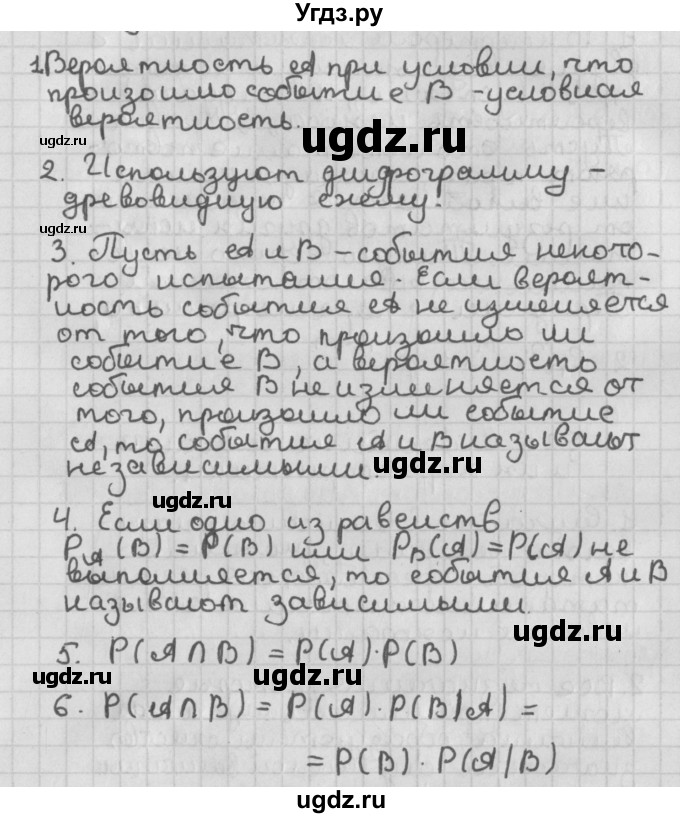 Угдз.ру
1. Вероятность A при условии, что
произошло событие B - условная
вероятность.
2. Используют диаграмму -
древовидную схему.
3. Пусть A и B - события некото-
рого испытания. Если вероят-
ность события A не изменяется
от того, что произошло ли
событие B, а вероятность
события B не изменяется от
того, произошло ли событие
A, то события A и B называют
независимыми.
4. Если одно из равенств
P_A (B) = P(B) или P_B(A) = P(A) не
выполняется, то события A и B
называют зависимыми.
5. P(A ∩ B) = P(A)·P(B)
6. P(A ∩ B) = P(A)·P(B|A) =
= P(B)·P(A/B)
ugdz.ru
ugdz.ru
ugdz.ru
ugdz.ru
ugdz.ru
ugdz.ru
ugdz.ru
ugdz.ru
ugdz.ru
ugdz.ru
ugdz.ru